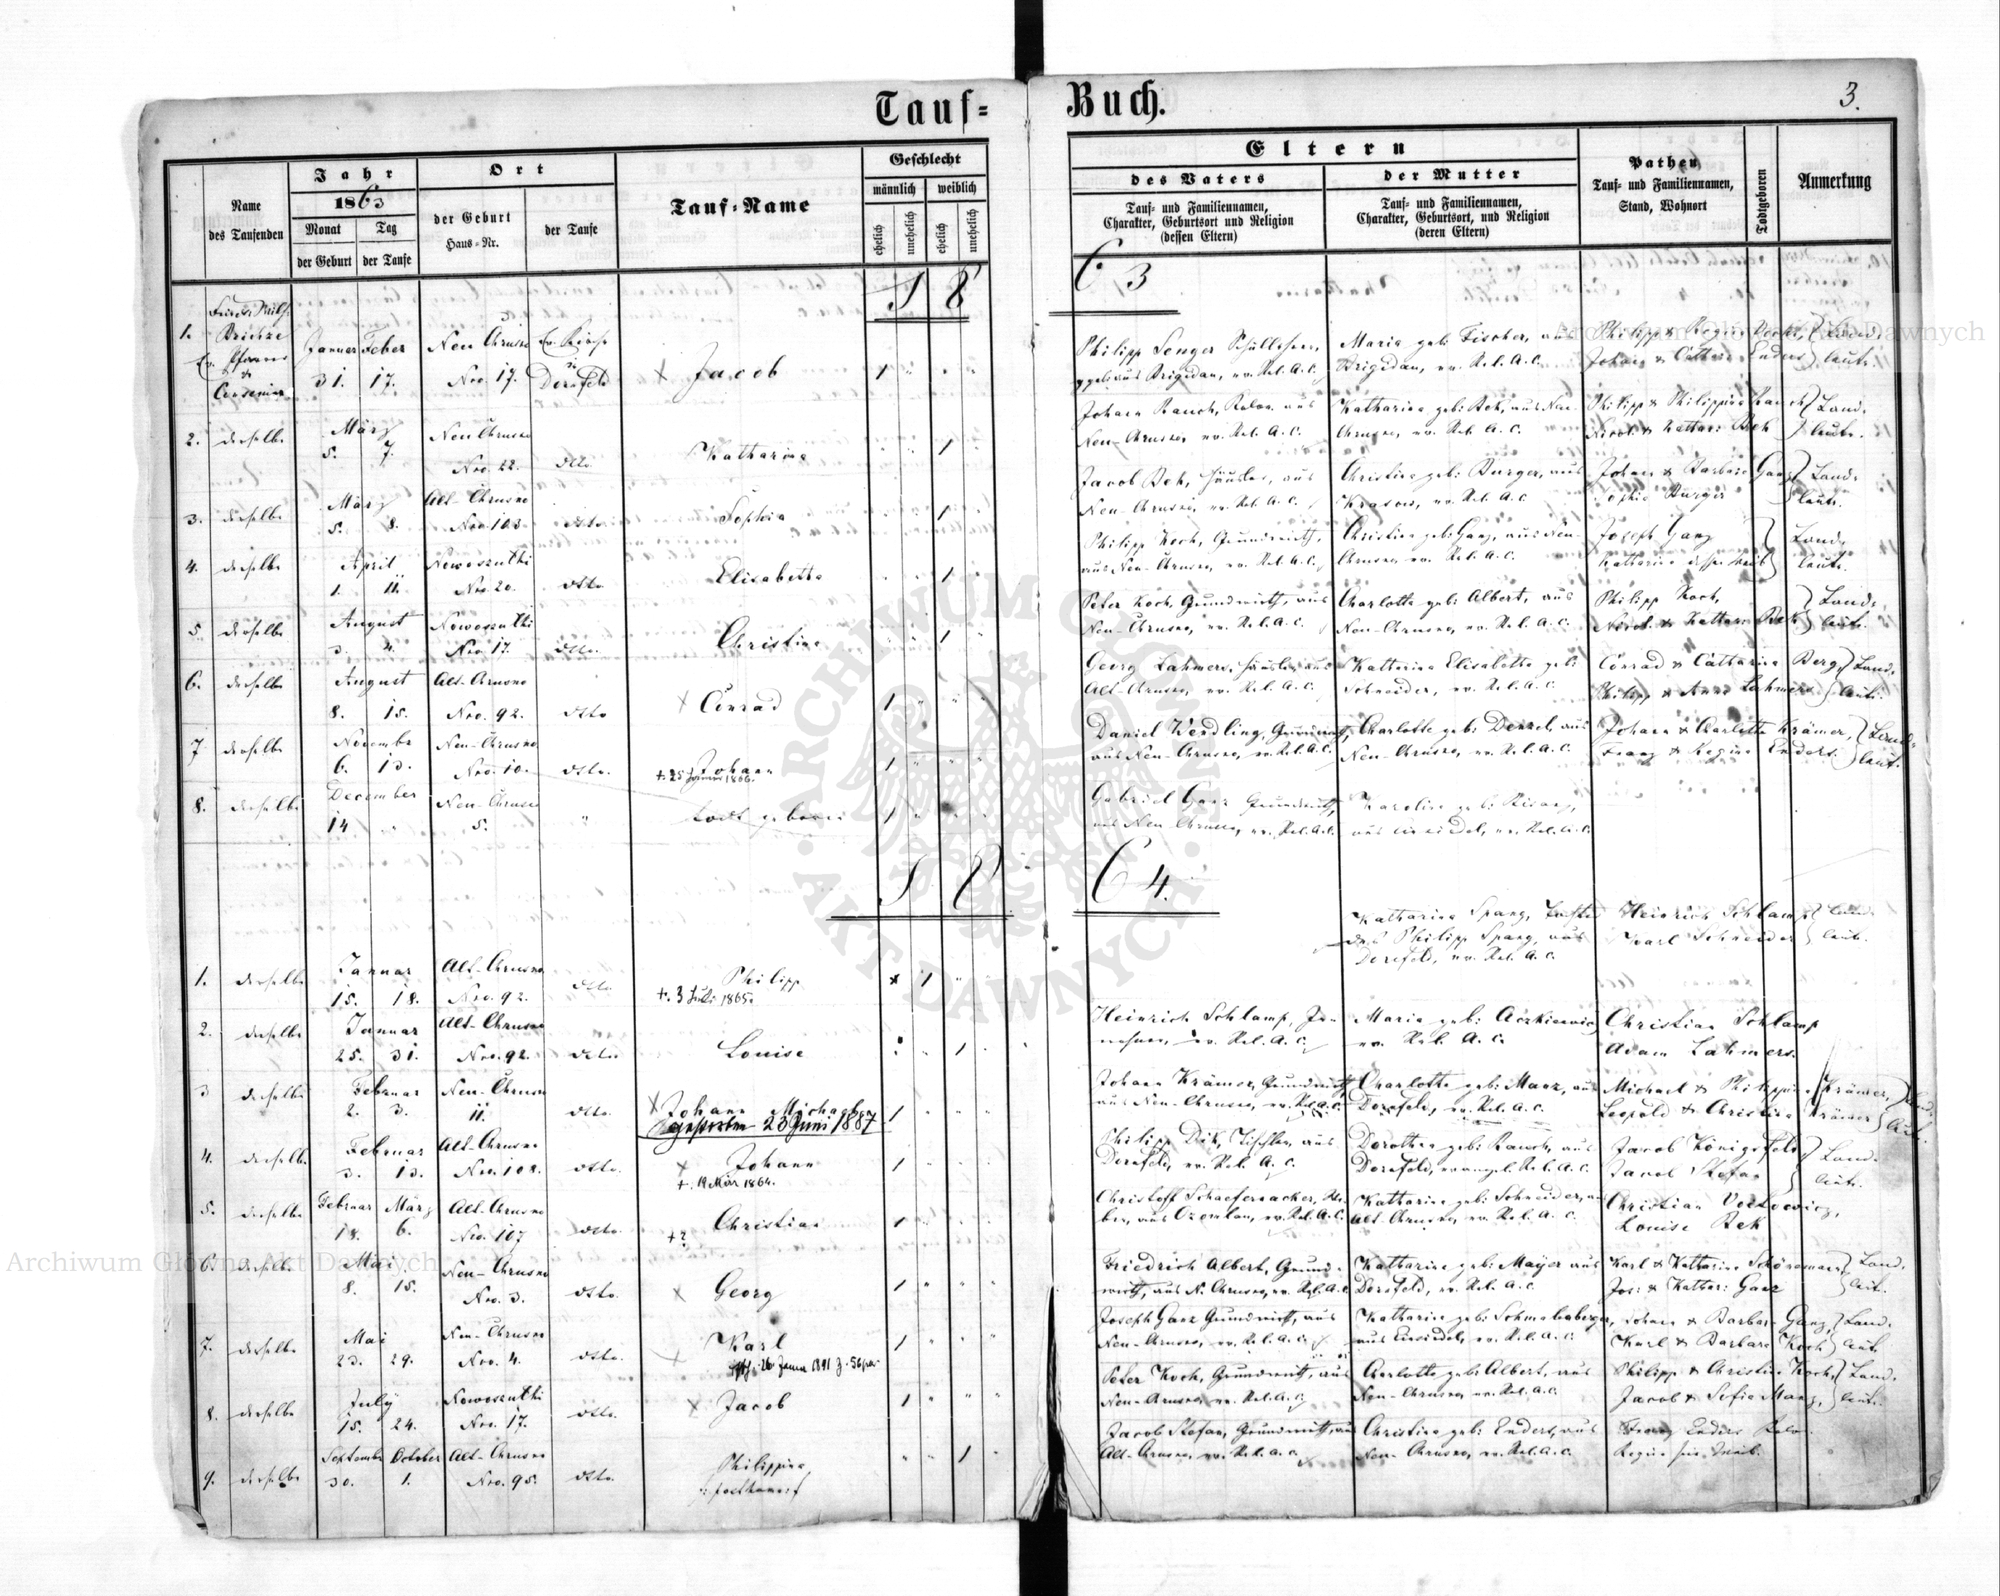 Tauf= Buch.
3.
Name des Taufenden
Jahr
1863
Monat Tag
der Geburt der Taufe
Ort
der Geburt Haus=Nr.
der Taufe
Tauf=Name
Geschlecht
männlich weiblich
ehelich unehelich ehelich unehelich
Eltern
des Vaters
Tauf= und Familiennamen,
Charakter, Geburtsort und Religion
(dessen Eltern)
der Mutter
Tauf= und Familiennamen,
Charakter, Geburtsort, und Religion
(deren Eltern)
Pathen
Tauf= und Familiennamen,
Stand, Wohnort
Todtgeboren
Anmerkung
1 8 6 3
1. Januar Feber Neu Chrusno Jacob 1
31. 17. Nro. 17. Dornfeld
Philipp Senger Maria geb: Fischer, aus
aus Brigidau, ev. Rel. A. C. Brigidau, ev. Rel. A. C.
2. derselbe März Neu Chrusno Katharina 1
5. 7. Nro. 22. dtto
Johann Rauch, aus Katharina geb: Bek, aus Neu- Philipp & Philippina Rauch Land-
Neu-Chrusno, ev. Rel. A. C. Chrusno, ev. Rel. A. C. Nicol. & Kathar: Bek leute.
3. derselbe März Alt-Chrusno Sophia 1
5. 8. Nro. 103. dtto
Jacob Bek, Häusler, aus Christina geb: Burger, aus Johann & Barbara Ganz Land-
Neu-Chrusno, ev. Rel. A. C. ev. Rel. A. C. Sophie Burger leute.
4. derselbe April Nowosiulki Elisabetha 1
1. 11. Nro. 20. dtto
Philipp Koch, Grundwirth, Christina geb: Ganz, aus Neu- Joseph Ganz Land-
aus Neu-Chrusno, ev. Rel. A. C. Chrusno, ev. Rel. A. C. Katharina leute.
5. derselbe August Nowosiulki Christina 1
3. 4. Nro. 17. dtto
Peter Koch, Grundwirth, aus Charlotta geb: Albert, aus Philipp Koch, Land-
Neu-Chrusno, ev. Rel. A. C. Neu-Chrusno, ev. Rel. A. C. Nicol. & Kathar: Bek leute.
6. derselbe August Alt-Chrusno Conrad 1
8. 15. Nro. 92. dtto
Georg Lahmers, Häusler, aus Katharina Elisabetha geb: Conrad & Catharina Berg, Land-
Alt-Chrusno, ev. Rel. A. C. Schneider, ev. Rel. A. C. Philipp & Anna Lahmers leute.
7 derselbe November Neu-Chrusno Johann 1
6. 13. Nro. 10. dtto. +. 25 Januar 1866.
Daniel Wendling, Grundwirth, Charlotta geb: Denzel, aus Johann & Charlotta Krämer, Land-
aus Neu-Chrusno, ev. Rel. A. C. Neu-Chrusno, ev. Rel. A. C. Franz & Regina Enders. leut.
8. derselbe December Neu-Chrusno todt geboren 1
14 " 5. "
Gabriel Ganz Grundwirth, Karolina geb:
aus Neu Chrusno, ev. Rel. A. C. aus Einsidel, ev. Rel. A. C.
1 8 6 4.
Katharina Spang, Tochter Heinrich Schlamp Land-
des Philipp Spang, aus Karl Schneider leute.
Dornfeld, ev. Rel. A. C.
1. derselbe Januar Alt-Chrusno Philipp 1
15. 18. Nro. 92. dtto +. 3 Juli 1865.
2. derselbe Januar Alt-Chrusno Louise 1
25. 31. Nro. 92. dtto
Heinrich Schlamp, Inn- Maria geb: Aczkiewicz Christian Schlamp
wohner, ev. Rel. A. C. ev. Rel. A. C. Adam Lahmers.
3 derselbe Februar Neu-Chrusno Johann Michael 1
2. 3. 11. dtto gestorben 23 Juni 1887
Johann Krämer, Grundwirth Charlotta geb: Manz, aus Michael & Philippina Krämer, Land-
aus Neu-Chrusno, ev. Rel. A. C. Dornfeld, ev. Rel. A. C. Leopold & Christina Krämer leut.
4. derselbe Februar Alt-Chrusno Johann 1
3. 13. Nro. 102. dtto. +. 19 März 1864.
Philipp Dik, Tischler, aus Dorothea geb: Rauch, aus Jacob Königsfeld Land-
Dornfeld, ev. Rel. A. C. Dornfeld, evangel. Rel. A. C. Jacob Stefan leut.
5. derselbe Februar März Alt-Chrusno Christian 1
18. 6. Nro. 107 dtto +?
Christoff Schaefernacker, Katharina geb: Schneider, Christian
Alt-Chrusno, ev. Rel. A. C. Louise Bek
6. derselbe Mai Neu-Chrusno Georg 1
8. 15. Nro. 3. dtto.
Friedrich Albert, Grund- Katharina geb: Mayer aus Karl & Katharina Schönemann, Land-
wirth, aus N. Chrusno, ev. Rel. A. C. Dornfeld, ev. Rel. A. C. Jos: & Kathar: Ganz leut.
7. derselbe Mai Neu-Chrusno Karl 1
23. 29. Nro. 4. dtto. 26 Januar 1891
Joseph Ganz Grundwirth, aus Katharina geb: Schmalenberger, Johann & Barbara Ganz, Land-
Neu-Chrusno, ev. Rel. A. C. aus Einsidel, ev. Rel. A. C. Karl & Barbara Koch leut
8. derselbe July Nowosiulki Jacob 1
15. 24. Nro. 17. dtto.
Peter Koch, Grundwirth, aus Charlotta geb: Albert, aus Philipp & Christina Koch, Land-
Neu-Chrusno, ev. Rel. A. C. Neu-Chrusno, ev. Rel. A. C. Jacob & Sofia Manz, leut.
9. derselbe September October Alt-Chrusno Philippina 1
30. 1. Nro. 95. dtto.
Jacob Stefan, Grundwirth, aus Christina geb: Enders, aus Franz Enders
Alt-Chrusno, ev. Rel. A. C. Neu-Chrusno, ev. Rel. A. C. Regina sein Weib.
Archiwum Główne Akt Dawnych
Archiwum Główne Akt Dawnych
ARCHIWUM GŁÓWNE AKT DAWNYCH